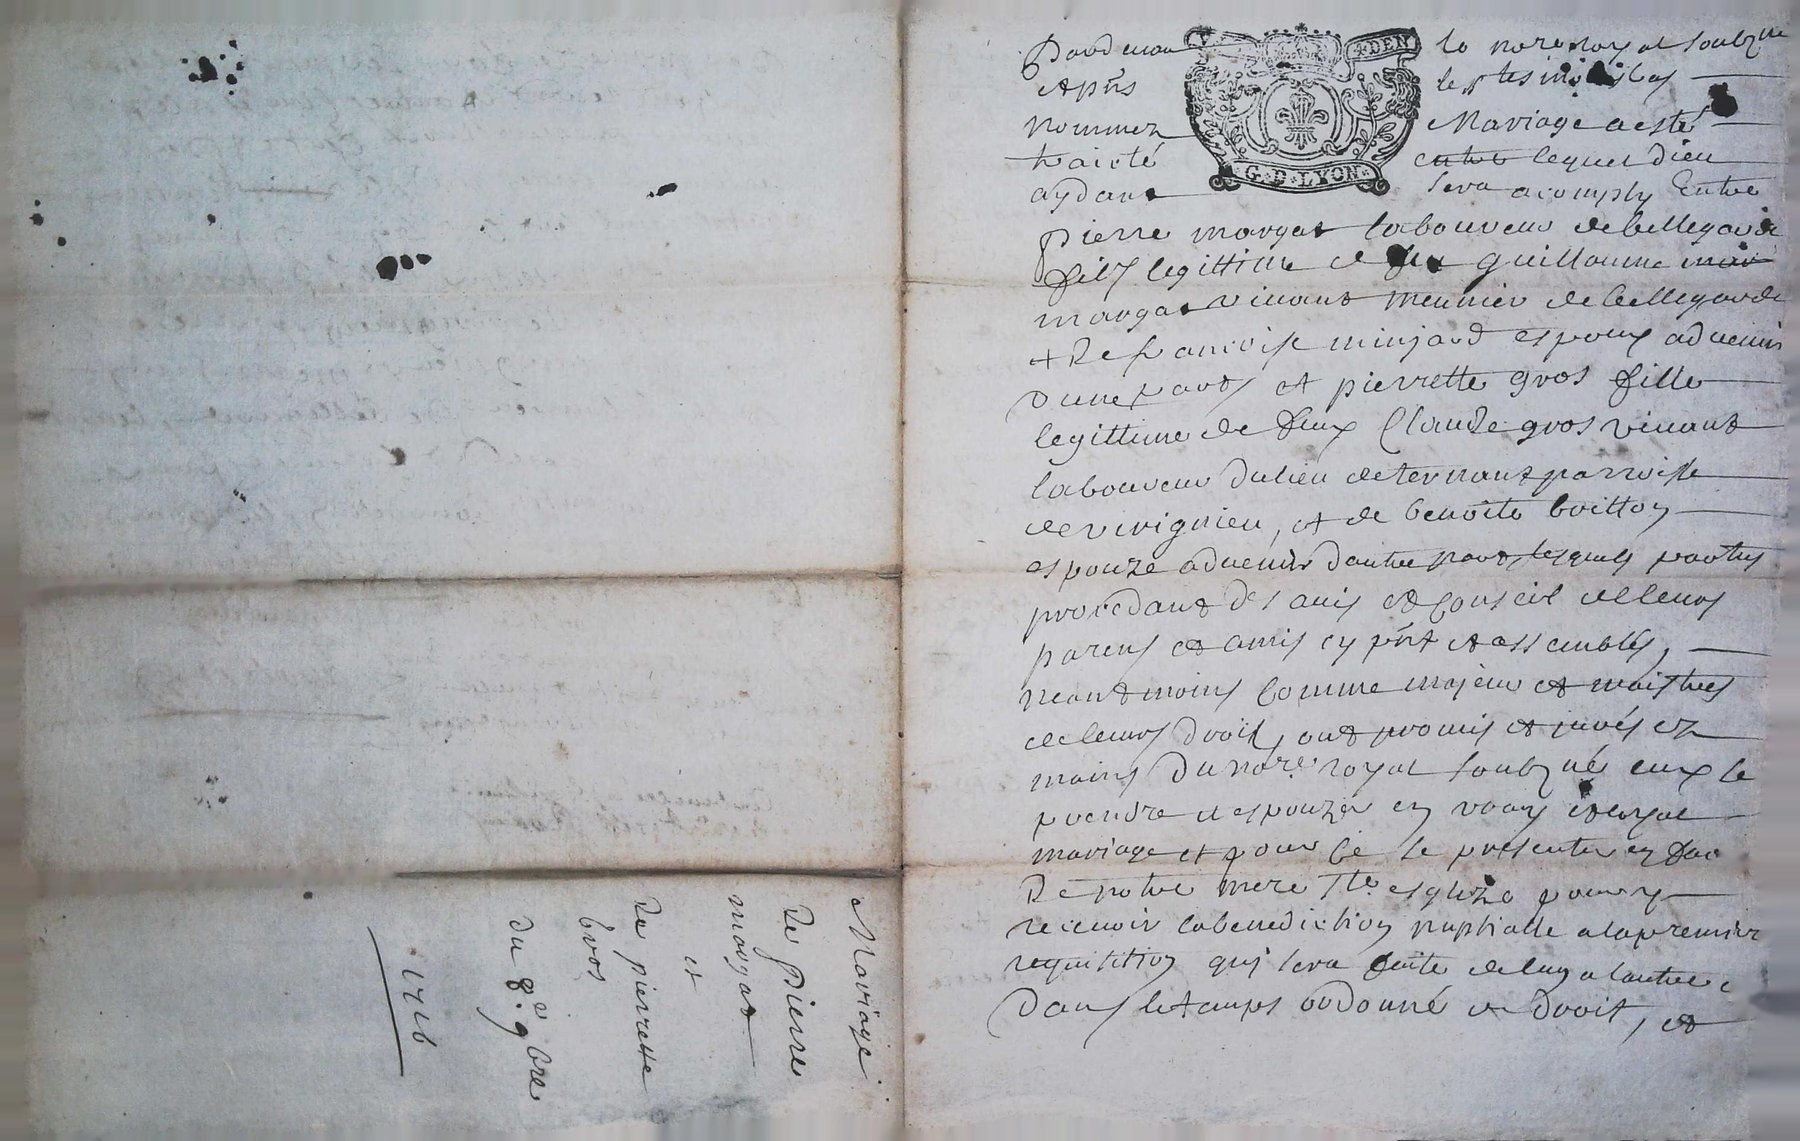 Mariage
de Pierre
margat
et
de pierrette
Gros
du 8e 9bre
1716
A DEN
G D LYON
Pardevan le nore royal soubzné
et pnts les tesmoins bas
nommez Mariage a esté
traicté entre lequel dieu
aydant sera acomply Entre
Pierre margat laboureur de bellegarde
filz legittime de feu guillaume mar
margat vivant meunier de bellegarde
et de francoise minjard espoux advenir
dune part, et pierrette gros fille
legittime de feux Claude gros vivant
laboureur du lieu de ternant parroisse
de virignieu, et de benoite boitton
espouze advenir dautre part, lesquels parties
procedant des avis et conseil de leurs
parens et amis cy pnt et assemblés,
neantmoins comme majeur et maistres
de leurs droits, ont promis et jurés ez
mains du nore royal soubzné eux se
prendre et espouzer en vray et loyal
mariage et pour ce se presenter en face
de notre mere Ste esglize pour y
recevoir la benediction nuptialle a la premier
requisition quy sera faite de lun a lautre
dans le temps ordonné de droit, et